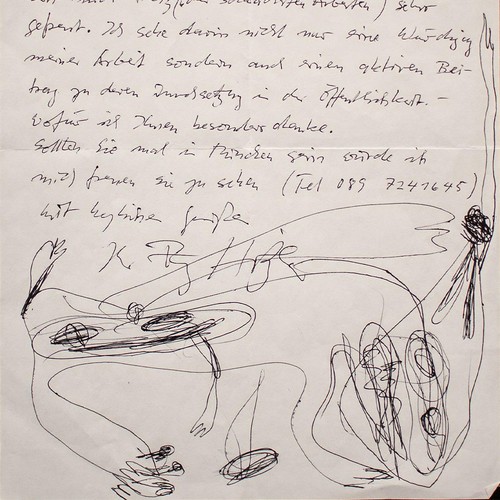 gefreut. Ich sehe darin nicht nur eine Würdigung
meiner Arbeit sondern auch einen aktiven Bei-
trag zu deren Durchsetzung in der Öffentlichkeit. –
wofür ich Ihnen besonders danke.
Sollten Sie mal in München sein würde ich
mich freuen sie zu sehen (Tel 089 7241645)
mit herzlichen Grüßen
K.